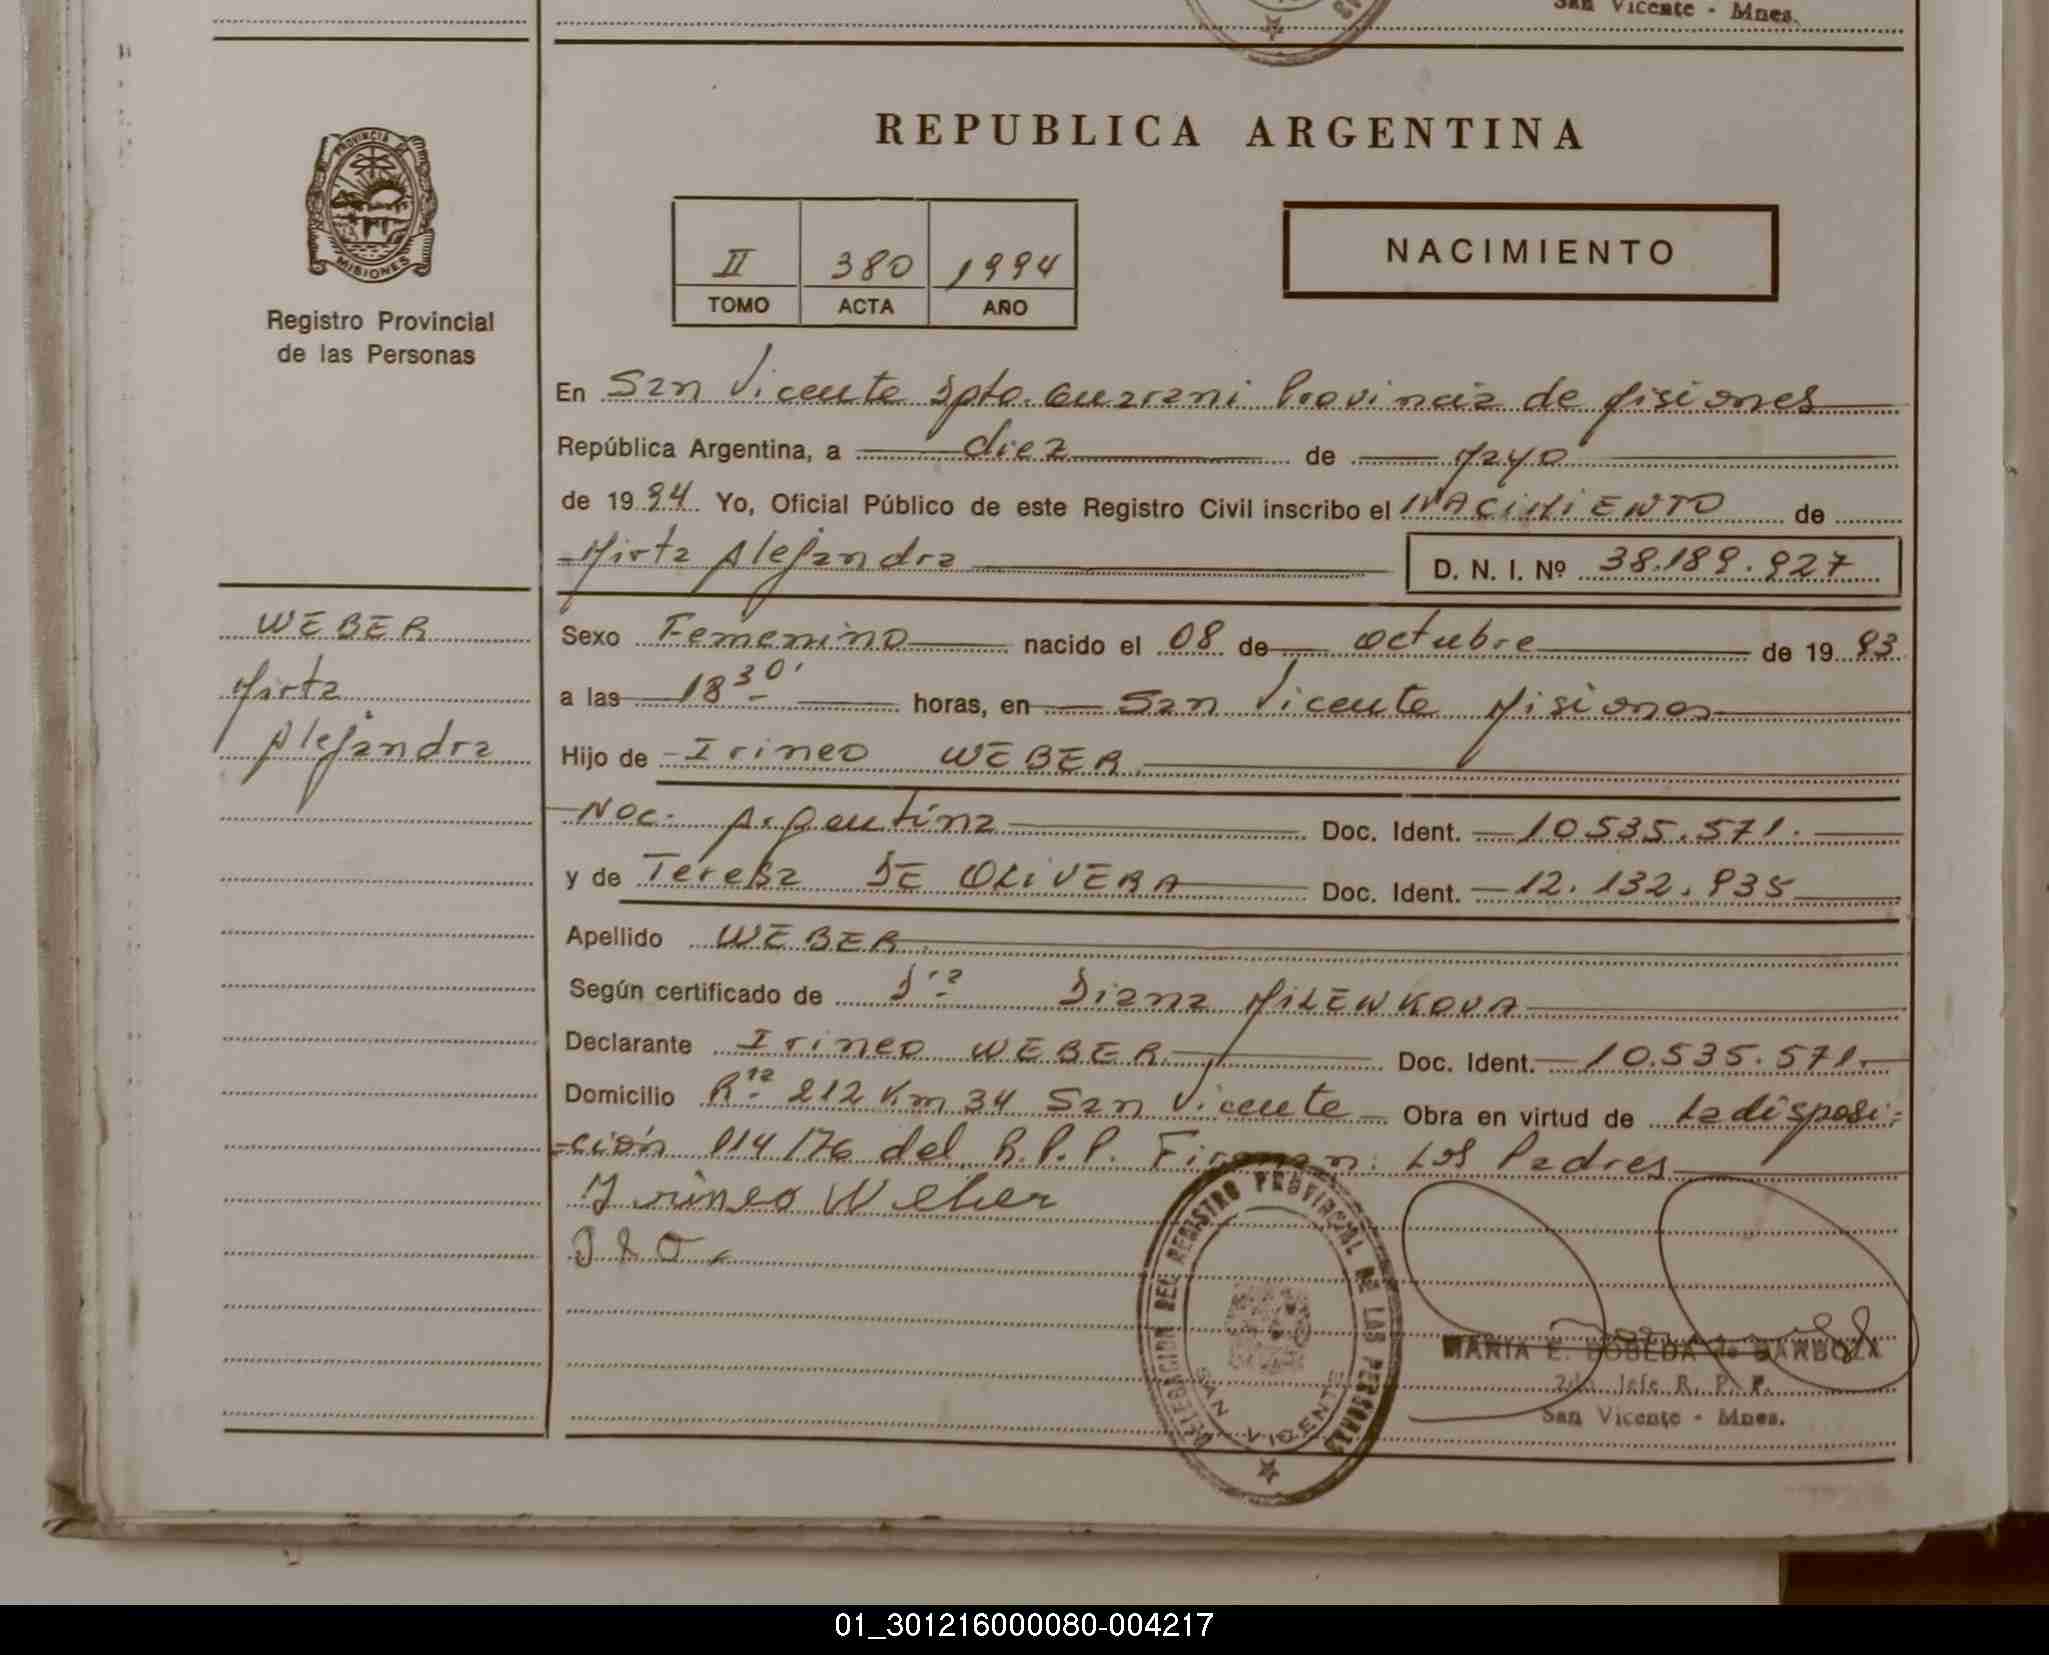 San Vicente - Mnes.
REPUBLICA ARGENTINA
PROVINCIA DE
MISIONES
Registro Provincial
de las Personas
II 380 1994
TOMO ACTA AÑO
NACIMIENTO
En San Vicente Dpto. Guarani Provincia de Misiones
República Argentina, a diez de Mayo
de 1994 Yo, Oficial Público de este Registro Civil inscribo el NACIMIENTO de
Mirta Alejandra D. N. I. Nº 38.189.927
WEBER
Mirta
Alejandra
Sexo Femenino nacido el 08 de octubre de 1993
a las 18 30' horas, en San Vicente Misiones
Hijo de Irineo WEBER
Nac. Argentina Doc. Ident. 10.535.571.
y de Teresa DE OLIVERA Doc. Ident. 12.132.935
Apellido WEBER
Según certificado de Dra Diana MILENKOVA
Declarante Irineo WEBER Doc. Ident. 10.535.571.
Domicilio Rta 212 Km 34 San Vicente Obra en virtud de La disposi=
=ción 114/76 del R.P.P. Firman: Los Padres
Irineo Weber
DELEGACION DEL REGISTRO PROVINCIAL DE LAS PERSONAS
SAN VICENTE
MARIA E. BOBEDA de BARBOZA
2do. Jefe R. P. P.
San Vicente - Mnes.
01_301216000080-004217